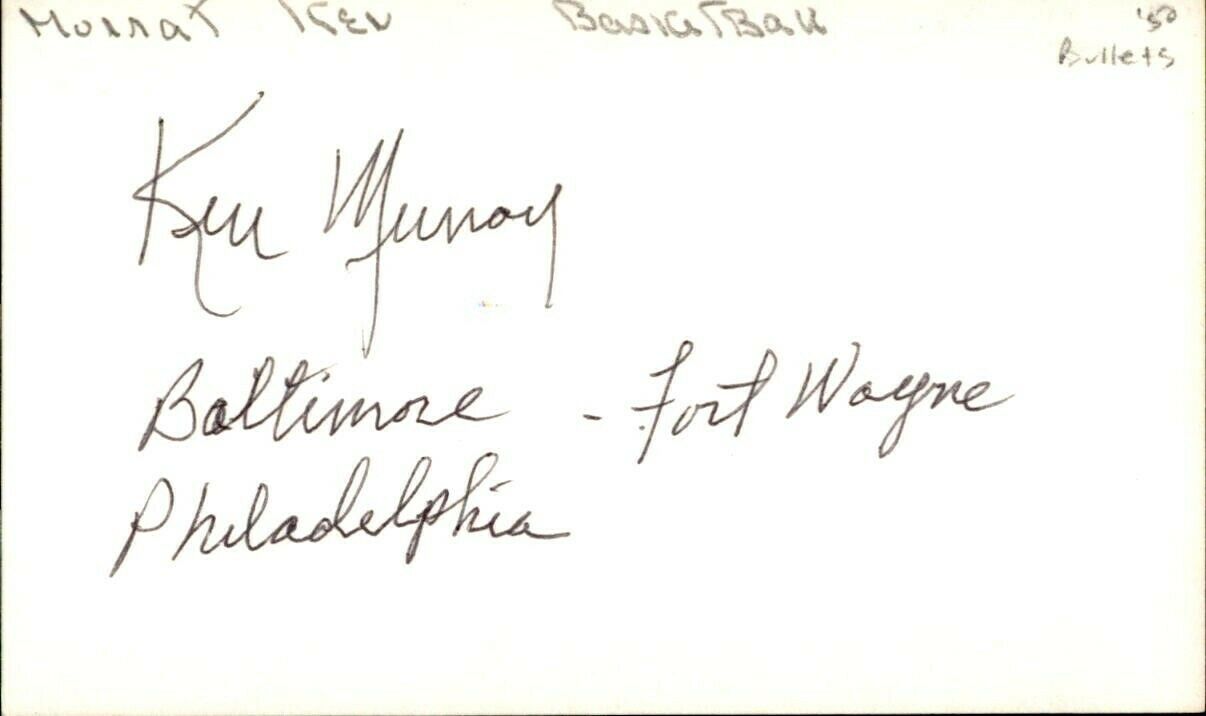 Murray Ken Basketball '50
Bullets
Ken Murray
Baltimore - Fort Wayne
Philadelphia